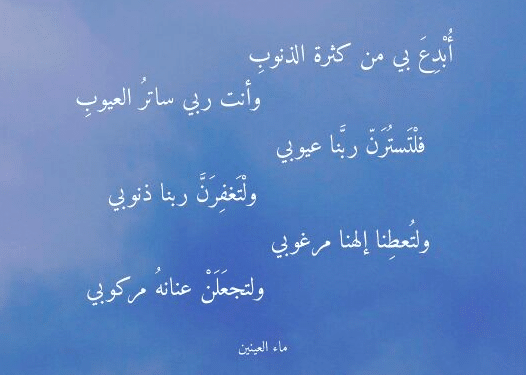 أُبْدِعَ بي من كثرة الذنوبِ
وأنت ربي ساترُ العيوبِ
فلْتَستُرَنّ ربَّنا عيوبي
ولْتَغفِرَنَّ ربنا ذنوبي
ولتُعطِنا إلهنا مرغوبي
ولتجعَلَنْ عنانهُ مركوبي
ماء العينين